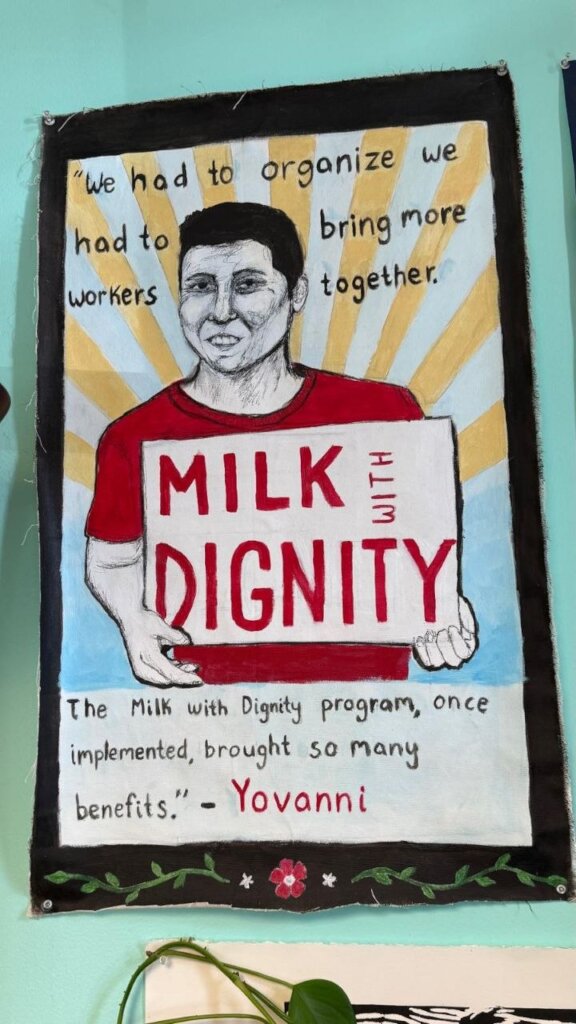 "We had to organize we
had to bring more
workers together.
MILK WITH
DIGNITY
The Milk with Dignity program, once
implemented, brought so many
benefits." - Yovanni